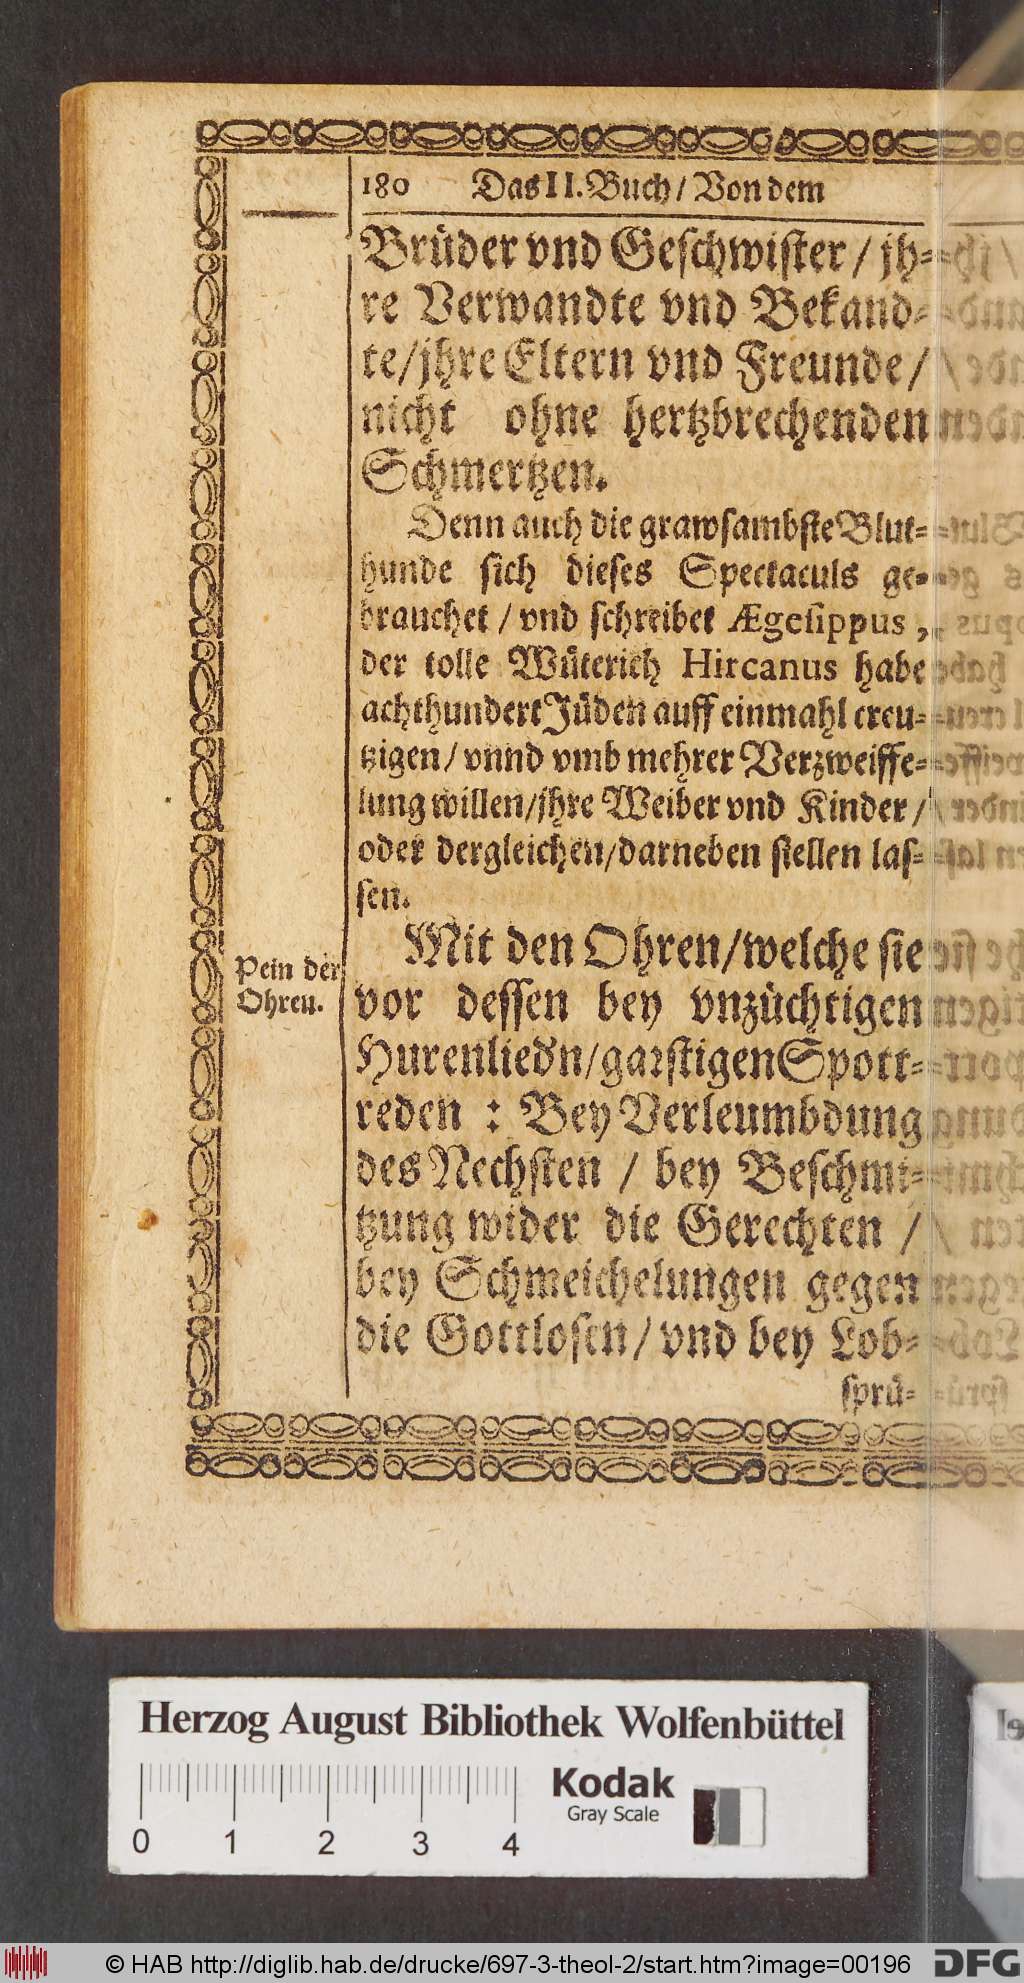 180 Das II. Buch / Von dem
Brüder vnd Geschwister / jh-
re Verwandte vnd Bekand-
te/jhre Eltern vnd Freunde /
nicht ohne hertzbrechenden
Schmertzen.
Denn auch die grawsambste Blut-
hunde sich dieses Spectaculs ge-
brauchet / vnd schreibet Ægesippus,
der tolle Wüterich Hircanus habe
achthundert Jüden auff einmahl creu-
tzigen / vnnd vmb mehrer Verzweiffe-
lung willen/jhre Weiber vnd Kinder /
oder dergleichen/darneben stellen las-
sen.
Pein der
Ohren.
Mit den Ohren/welche sie
vor dessen bey vnzüchtigen
Hurenliedn/garstigen Spott-
reden : Bey Verleumbdung
des Nechsten / bey Beschmi-
tzung wider die Gerechten /
bey Schmeichelungen gegen
die Gottlosen / vnd bey Lob-
sprü-
Herzog August Bibliothek Wolfenbüttel
0 1 2 3 4
Kodak
Gray Scale
© HAB http://diglib.hab.de/drucke/697-3-theol-2/start.htm?image=00196
DFG